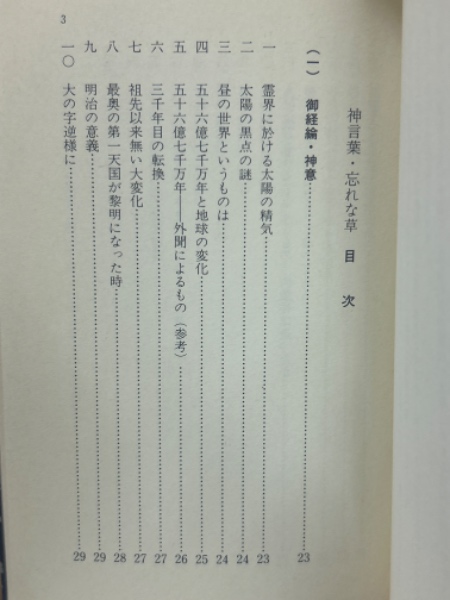 神言葉・忘れな草 目次
(一) 御経綸・神意……23
一 霊界に於ける太陽の精気……23
二 太陽の黒点の謎……24
三 昼の世界というものは……24
四 五十六億七千万年と地球の変化……25
五 五十六億七千万年――外聞によるもの(参考)……26
六 三千年目の転換……27
七 祖先以来無い大変化……27
八 最奥の第一天国が黎明になった時……28
九 明治の意義……29
一〇 大の字逆様に……29
3